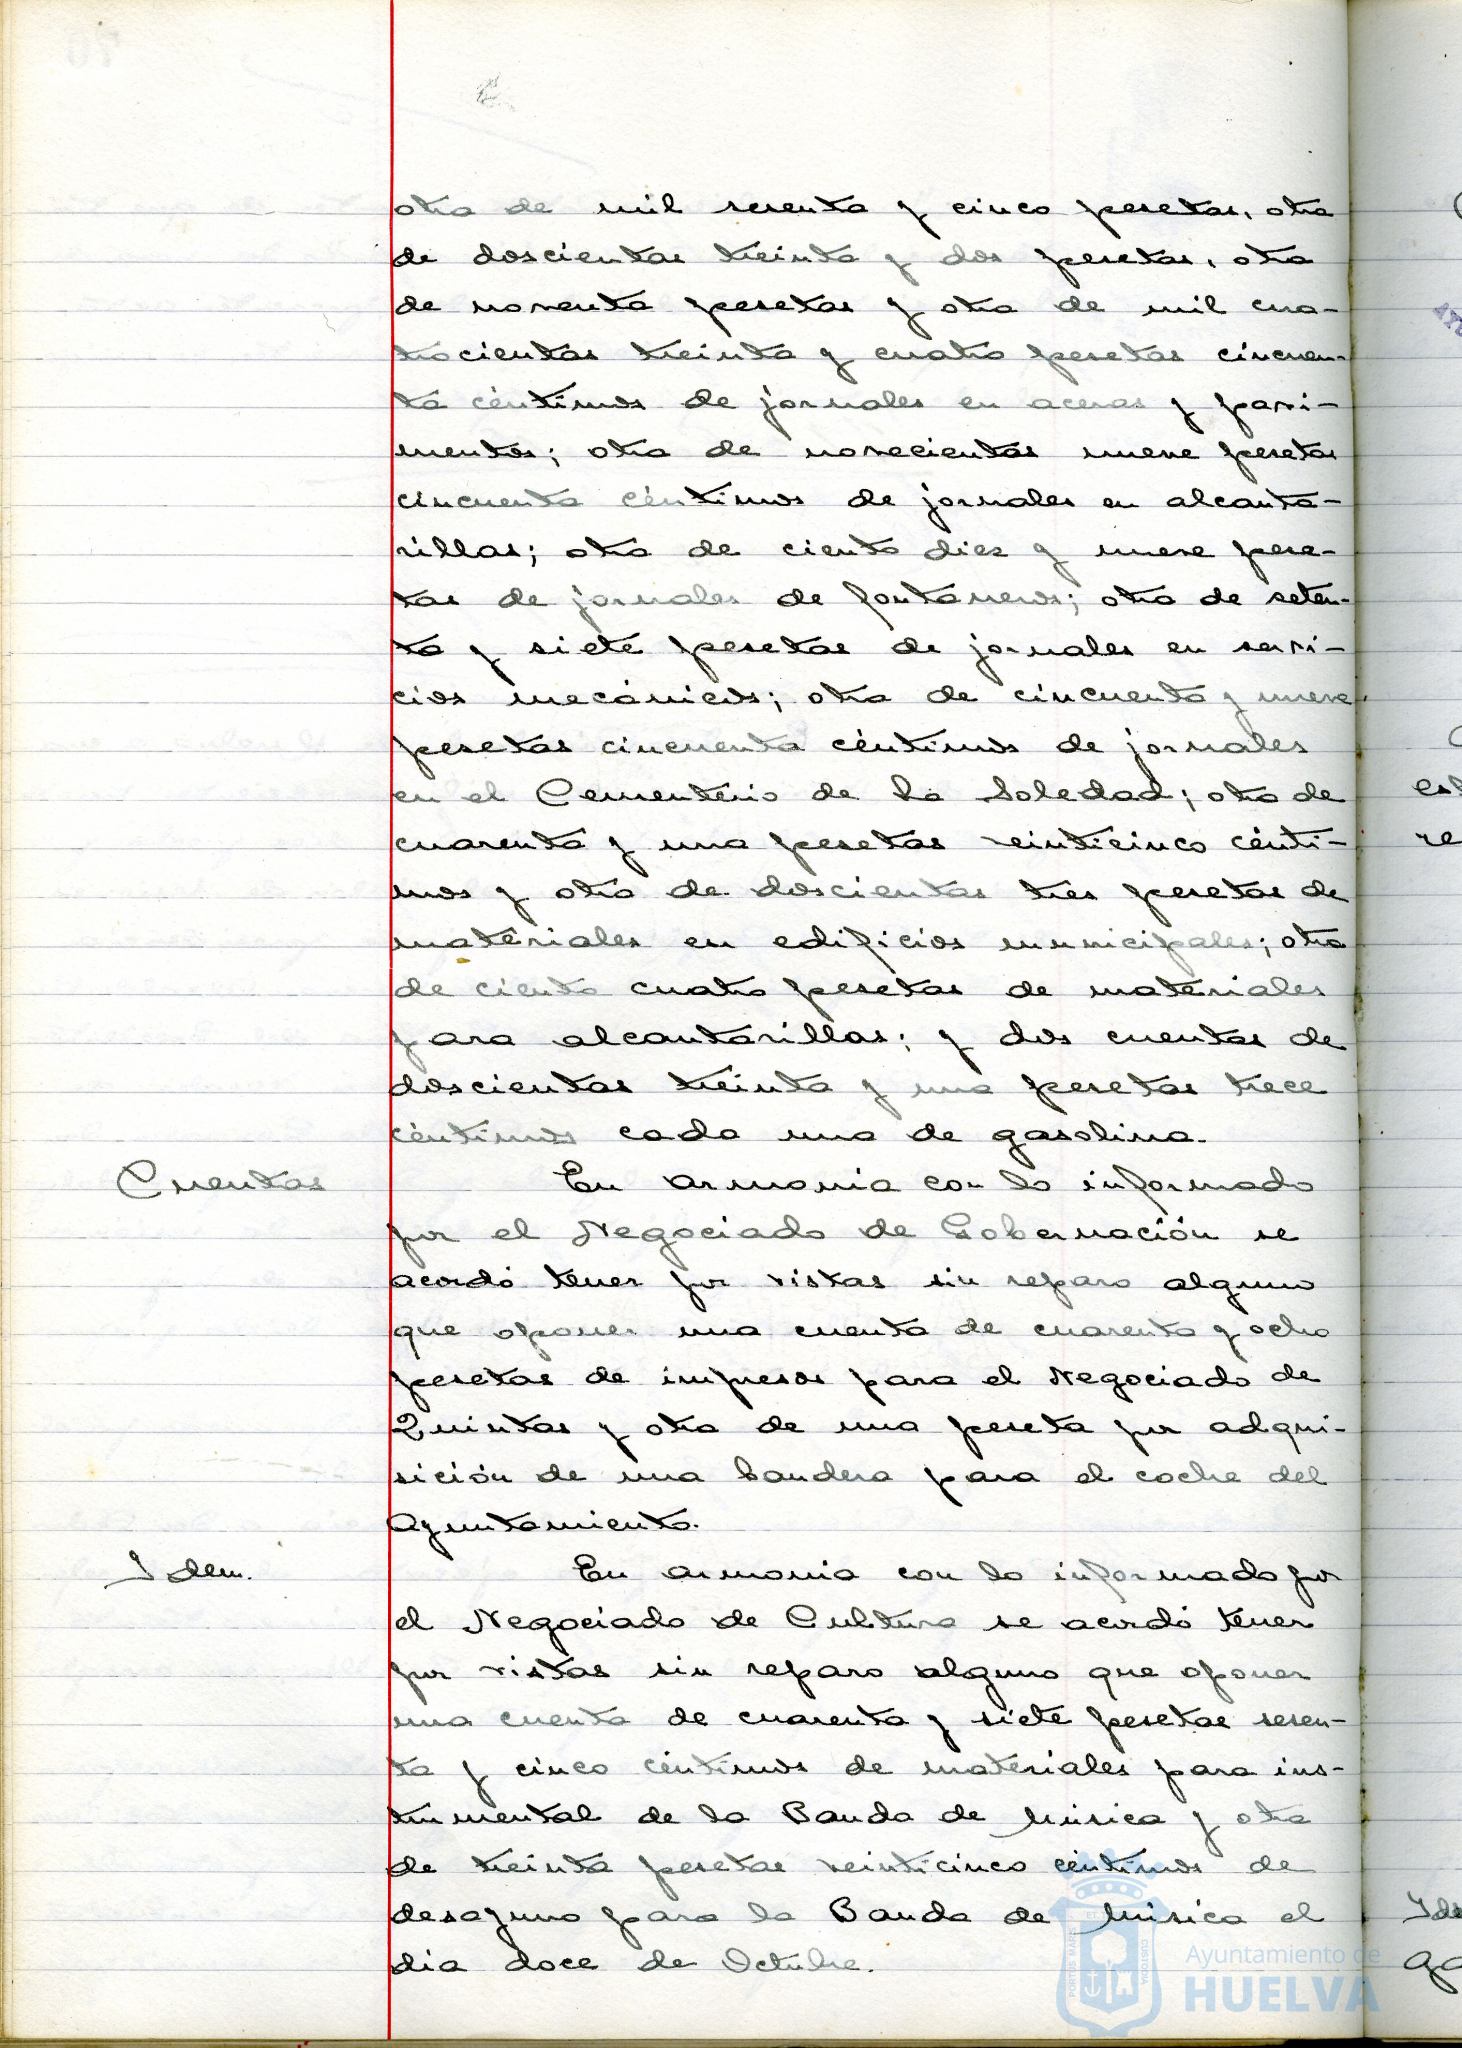 otra de mil sesenta y cinco pesetas, otra
de doscientas treinta y dos pesetas, otra
de noventa pesetas y otra de mil cua-
trocientas treinta y cuatro pesetas cincuen-
ta céntimos de jornales en aceras y pavi-
mentos; otra de novecientas nueve pesetas
cincuenta céntimos de jornales en alcanta-
rillas; otra de ciento diez y nueve pese-
tas de jornales de fontaneros; otra de seten-
ta y siete pesetas de jornales en servi-
cios mecánicos; otra de cincuenta y nueve
pesetas cincuenta céntimos de jornales
en el Cementerio de la Soledad; otra de
cuarenta y una pesetas veinticinco cénti-
mos y otra de doscientas tres pesetas de
materiales en edificios municipales; otra
de ciento cuatro pesetas de materiales
para alcantarillas; y dos cuentas de
doscientas treinta y una pesetas trece
céntimos cada una de gasolina.
Cuentas En armonia con lo informado
por el Negociado de Gobernación se
acordó tener por vistas sin reparo alguno
que oponer una cuenta de cuarenta y ocho
pesetas de impresos para el Negociado de
Quintas y otra de una peseta por adqui-
sición de una bandera para el coche del
Ayuntamiento.
Idem. En armonia con lo informado por
el Negociado de Cultura se acordó tener
por vistas sin reparo alguno que oponer
una cuenta de cuarenta y siete pesetas sesen-
ta y cinco céntimos de materiales para ins-
trumental de la Banda de Música y otra
de treinta pesetas veinticinco céntimos de
desayuno para la Banda de Música el
dia doce de Octubre.
PORTUS MARIS ET CUSTODIA
Ayuntamiento de
HUELVA